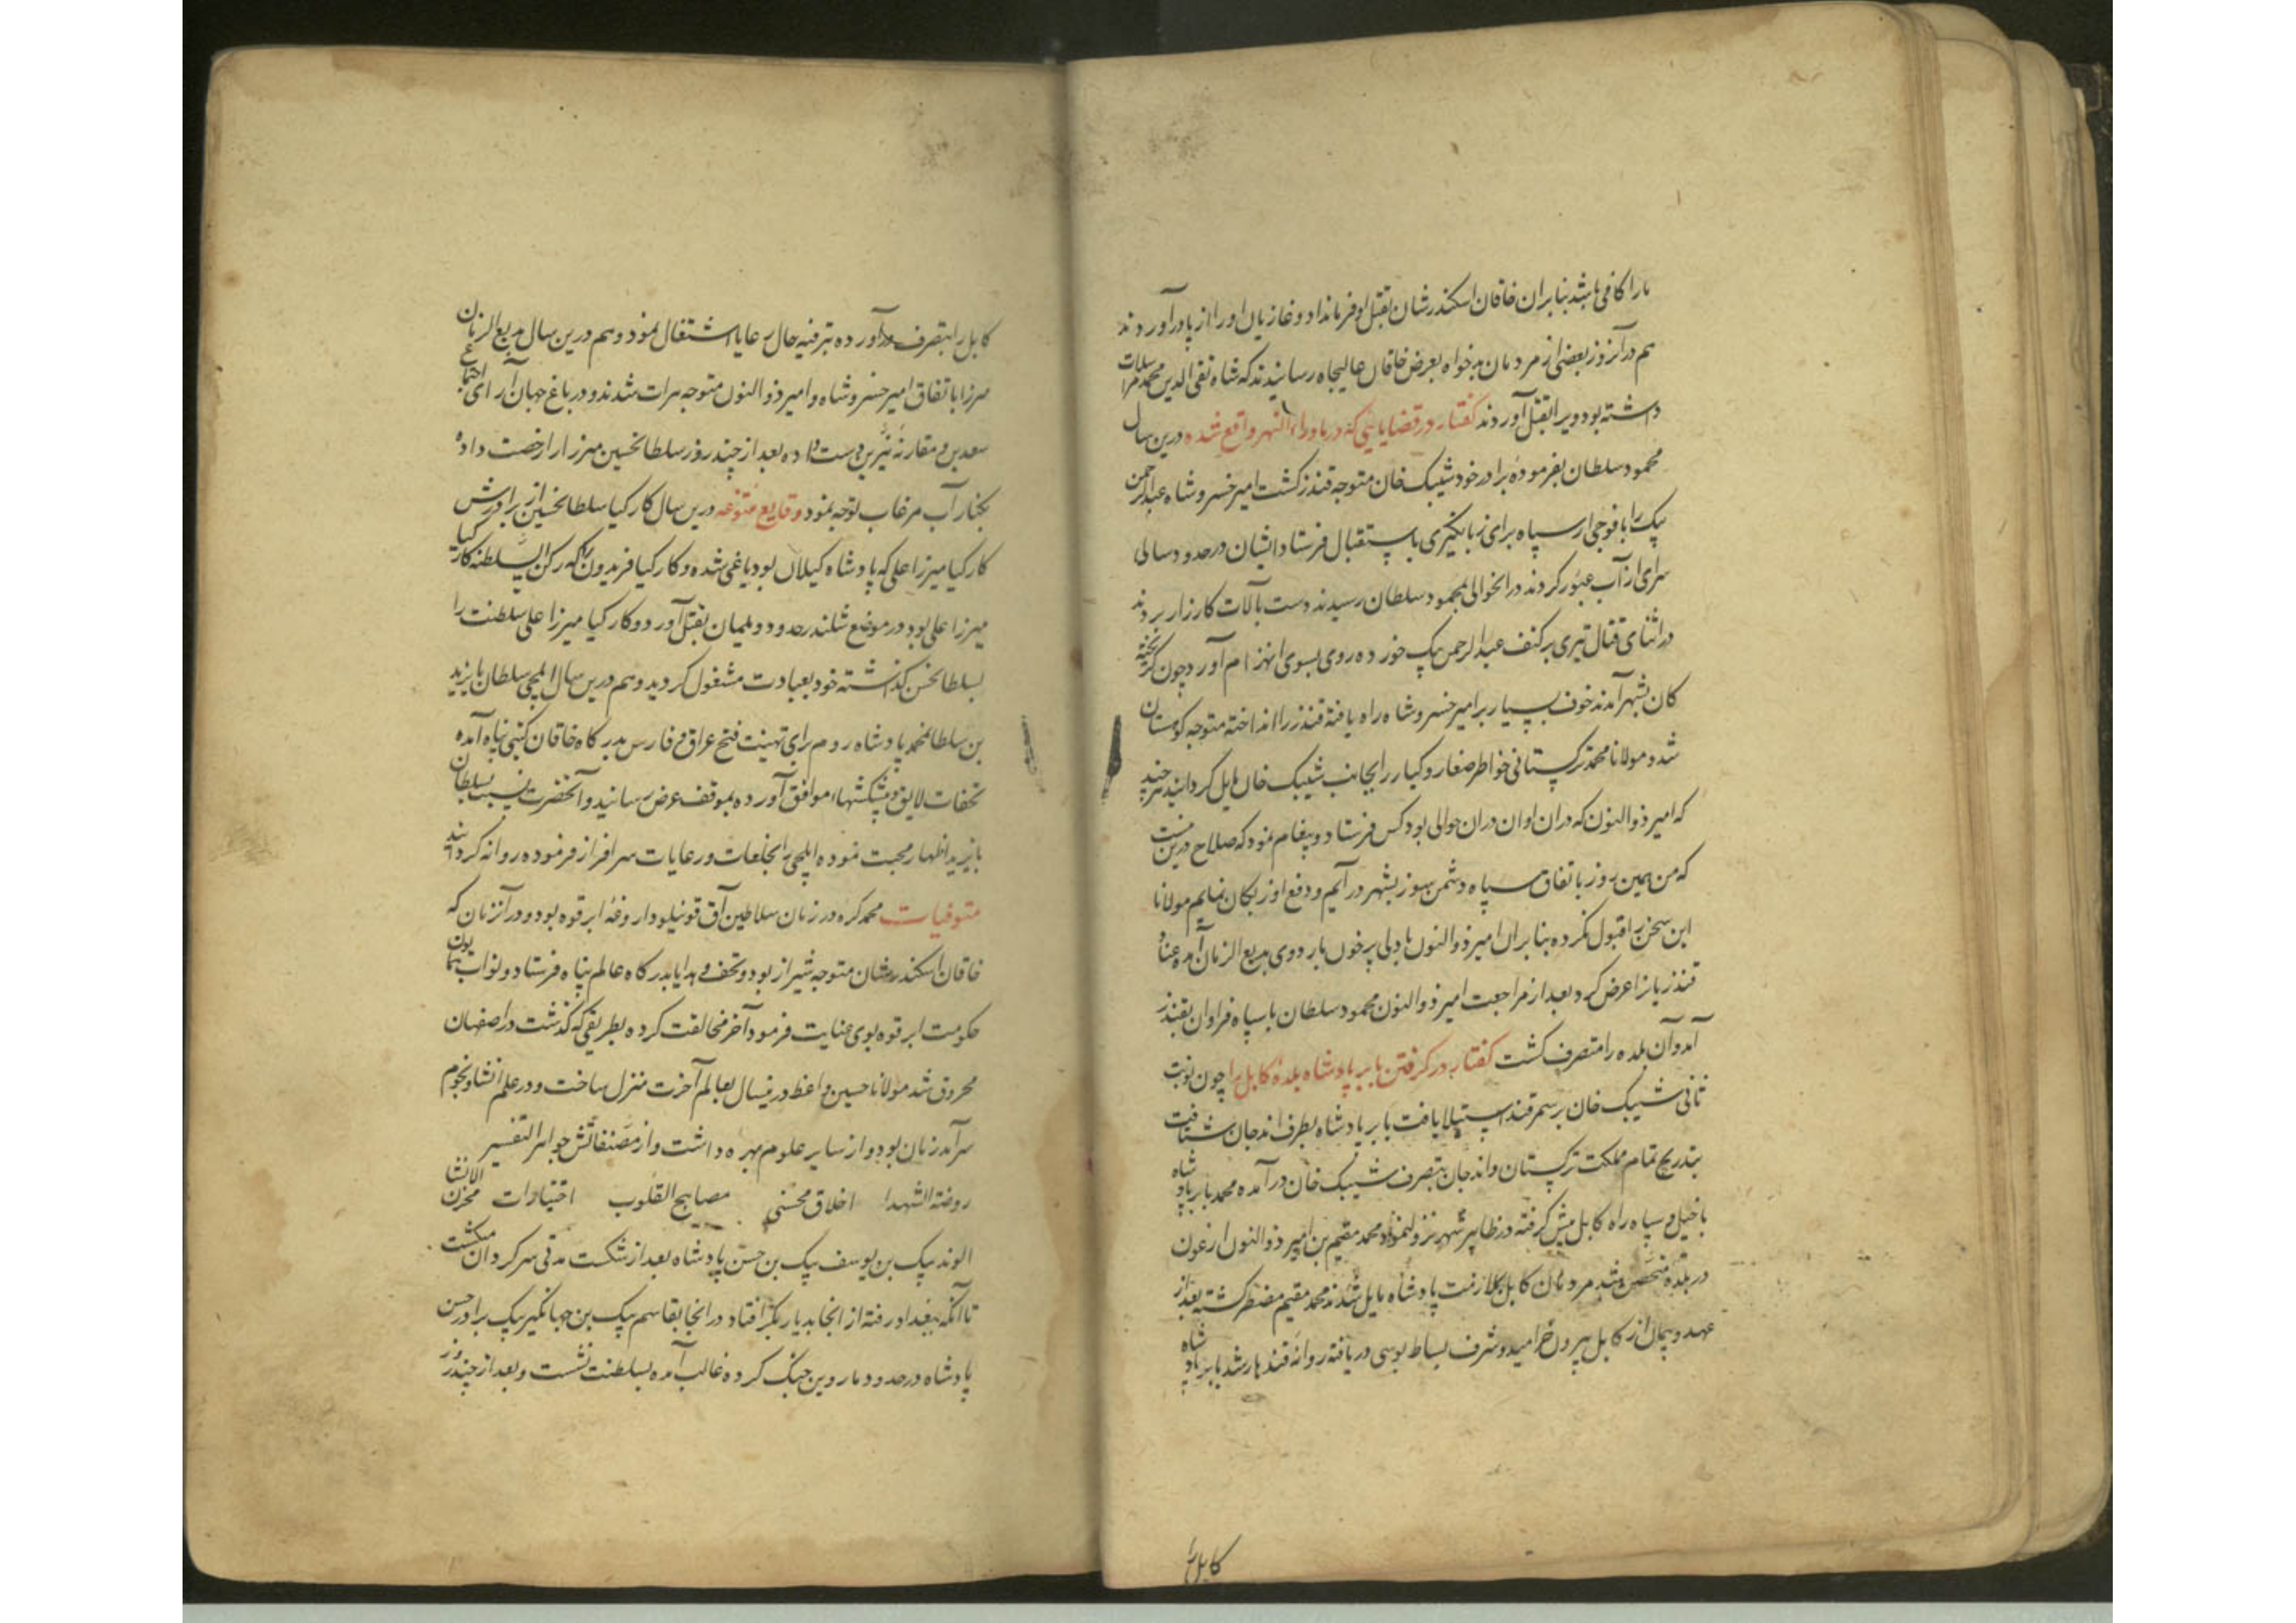 ما را کافی باشد بنابران خاقان اسکندرشان بقتل او فرمانداد و غازیان او را از پا درآوردند
هم در آنروز بعضی از مردمان بدخواه بعرض خاقان عالیجاه رسانیدند که شاه تقی الدین محمد مراسلات
داشته بود ویرا بقتل آوردند گفتار در قضایائی که در ماوراء النهر واقع شده درین سال
محمود سلطان بفرموده برادر خود شیبک خان متوجه قندز کشت امیر خسرو شاه عبدالرحمن
بیک را با فوجی از سپاه برای زبانکیری باستقبال فرستاد ایشان در حدود سالی
سرای از آب عبور کردند در انحوالی بمحمود سلطان رسیدند دست بآلات کارزار بردند
در اثنای قتال تیری بر کتف عبدالرحمن بیک خورده روی بسوی انهزام آورد چون کریخته
کان بشهر آمدند خوف بسیار بر امیر خسرو شاه راه یافته قندز را انداخته متوجه کوهستان
شد و مولانا محمد ترکستانی خواطر صغار و کبار را بجانب شیبک خان مایل کردانید هر چند
که امیر ذوالنون که در ان اوان در ان حوالی بود کس فرستاد و پیغام نمود که صلاح درین نیست
که من همین روز باتفاق سپاه دشمن سوز بشهر در آیم و دفع اوزبکان نمایم مولانا
این سخن را قبول نکرده بنابران امیر ذوالنون با دلی پر خون باردوی بدیع الزمان آمده عناد
قندزیانرا عرض کرد بعد از مراجعت امیر ذوالنون محمود سلطان با سپاه فراوان بقندز
آمد و آن بلده را متصرف کشت گفتار در کرفتن بابر پادشاه بلده کابل را چون نوبت
ثانی شیبک خان بر سمرقند استیلا یافت بابر پادشاه بطرف اندجان شتافت
بتدریج تمام مملکت ترکستان و اندجان بتصرف شیبک خان در آمده محمد بابر پادشاه
با خیل و سپاه راه کابل پیش کرفته در ظاهر شهر نزول نمود محمد مقیم بن امیر ذوالنون ارغون
در بلده متحصن شد مردمان کابل بملازمت پادشاه مایل شدند محمد مقیم مضطر کشته بعد از
عهد و پیمان از کابل بیرون خرامید و شرف بساط بوسی دریافته روانه قندهار شد بابر پادشاه
کابل را
کابل را بتصرف درآورده بترفیه حال رعایا اشتغال نمود و هم درین سال بدیع الزمان
میرزا باتفاق امیر خسرو شاه و امیر ذوالنون متوجه هرات شدند و در باغ جهان آرای اجتماع
سعدین و مقارنه نیرین دست داده بعد از چند روز سلطانحسین میرزا را رخصت داده
بکنار آب مرغاب توجه نمود وقایع متنوعه درین سال کارکیا سلطانحسین از برادرش
کارکیا میرزا علی که پادشاه کیلان بود یاغی شده و کارکیا فریدون را که رکن السلطنه کارکیا
میرزا علی بود در موضع شلندرحدود دیلمان بقتل آورد و کارکیا میرزا علی سلطنت را
بسلطانحسن کذاشته خود بعبادت مشغول کردید و هم درین سال ایلچی سلطان بایزید
بن سلطانمحمد پادشاه روم برای تهنیت فتح عراق و فارس بدرکاه خاقان کیتی پناه آمده
تحفات لایق و پیشکشهاء موافق آورده بموقف عرض رسانید و آنحضرت نسبت بسلطان
بایزید اظهار محبت نموده ایلچی را بخلعات و رعایات سرافراز فرموده روانه کردانید
متوفیات محمد کره در زمان سلاطین آق قوینلو داروغه ابرقوه بود و در آنزمان که
خاقان اسکندرشان متوجه شیراز بود و تحف و هدایا بدرکاه عالم پناه فرستاد و نواب همایون
حکومت ابرقوه بوی عنایت فرمود آخر مخالفت کرده بطریقی که کذشت در اصفهان
محروق شد مولانا حسین واعظ درینسال بعالم آخرت منزل ساخت و در علم انشا و نجوم
سرآمد زمان بود و از سایر علوم بهره داشت و از مصنفاتش جواهر التفسیر
روضة الشهدا اخلاق محسنی مصابیح القلوب اختیارات مخزن الانشا
الوند بیک بن یوسف بیک بن حسن پادشاه بعد از شکست مدتی سرکردان میکشت
تا آنکه ببغداد رفته از انجا بدیاربکر افتاد در انجا بقاسم بیک بن جهانکیر بیک برادر حسن
پادشاه در حدود ماردین جنک کرده غالب آمده بسلطنت نشست و بعد از چند روز